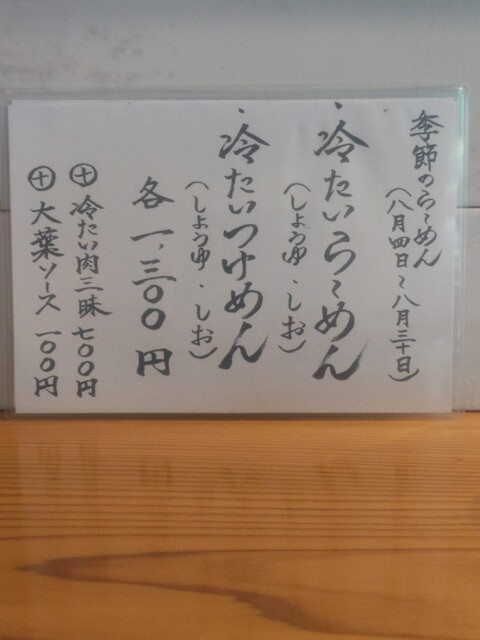 季節のらーめん
(八月四日〜八月三十日)
・冷たいらーめん
(しょうゆ・しお)
・冷たいつけめん
(しょうゆ・しお)
各一、三〇〇円
㊉冷たい肉三昧 七〇〇円
㊉大葉ソース 一〇〇円